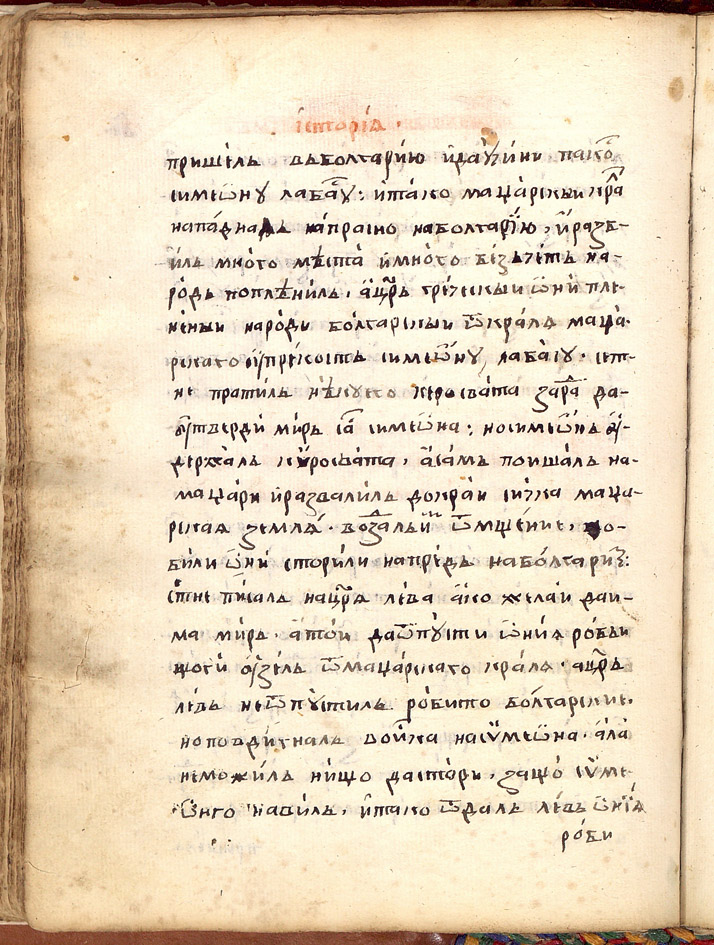 історїѧ
пришелъ въболгарїю идаꙋчини пакⷪ
симеѡнꙋ лабасꙋ: итако маџарскьи крⷧа
нападналъ напрасно наболгарїю, иразб-
илъ много мѣста имного безъчетъ на-
родъ поплѣнилъ. ацр҃ь греческьи ѡни пле-
нены народи болгарскьи ѿкралѧ маџа-
рскаго
симеѡнꙋ, лабасꙋ.
не пратилъ нѣкꙋего керосвата да-
ꙋтверди миръ симеѡна: носимеѡнъ ꙋ-
держалъ кѵросвата. асамъ пошалъ на-
маџари иразвалилъ докраи сичка маџа-
рскаѧ землѧ. ѿмщение, по-
били ѡни сторили напредъ наболгари:
писалъ нацр҃ѧ лева ако желаи даи-
ма миръ. атои даѿпꙋсти ѡниѧ робьи
щоги ꙋзелъ ѿмаџарскаго кралѧ. ацр҃ь
левъ неѿпꙋстилъ робито болгарские.
ноповдигналъ воиска насѵмеѡна. ала
неможилъ нищо дастори, защо сѵме-
ѡнго навилъ. итако ѿдалъ левъ ѡнїѧ
роби